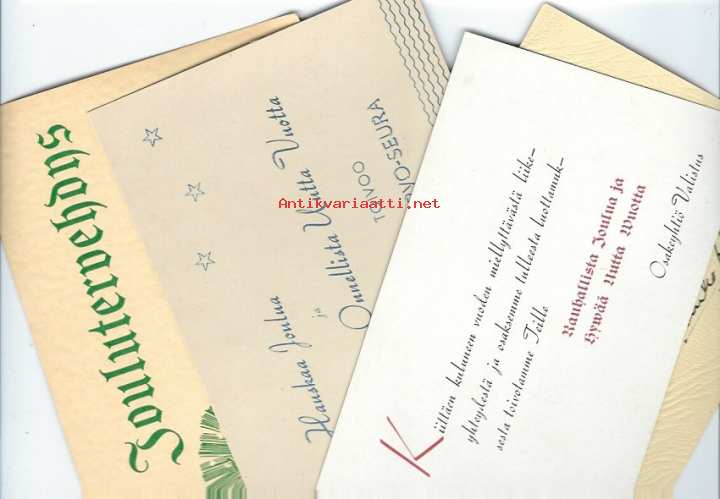 Jouluterwehdys
Hauskaa Joulua
ja
Onnellista Uutta Vuotta
TOIVOO
VO-SEURA
Antikvariaatti.net
Kiittäen kuluneen vuoden miellyttävästä liike-
yhteydestä ja osaksemme tulleesta luottamuk-
sesta toivotamme Teille
Rauhallista Joulua ja
Hywää Uutta Wuotta
Osakeyhtiö Valistus